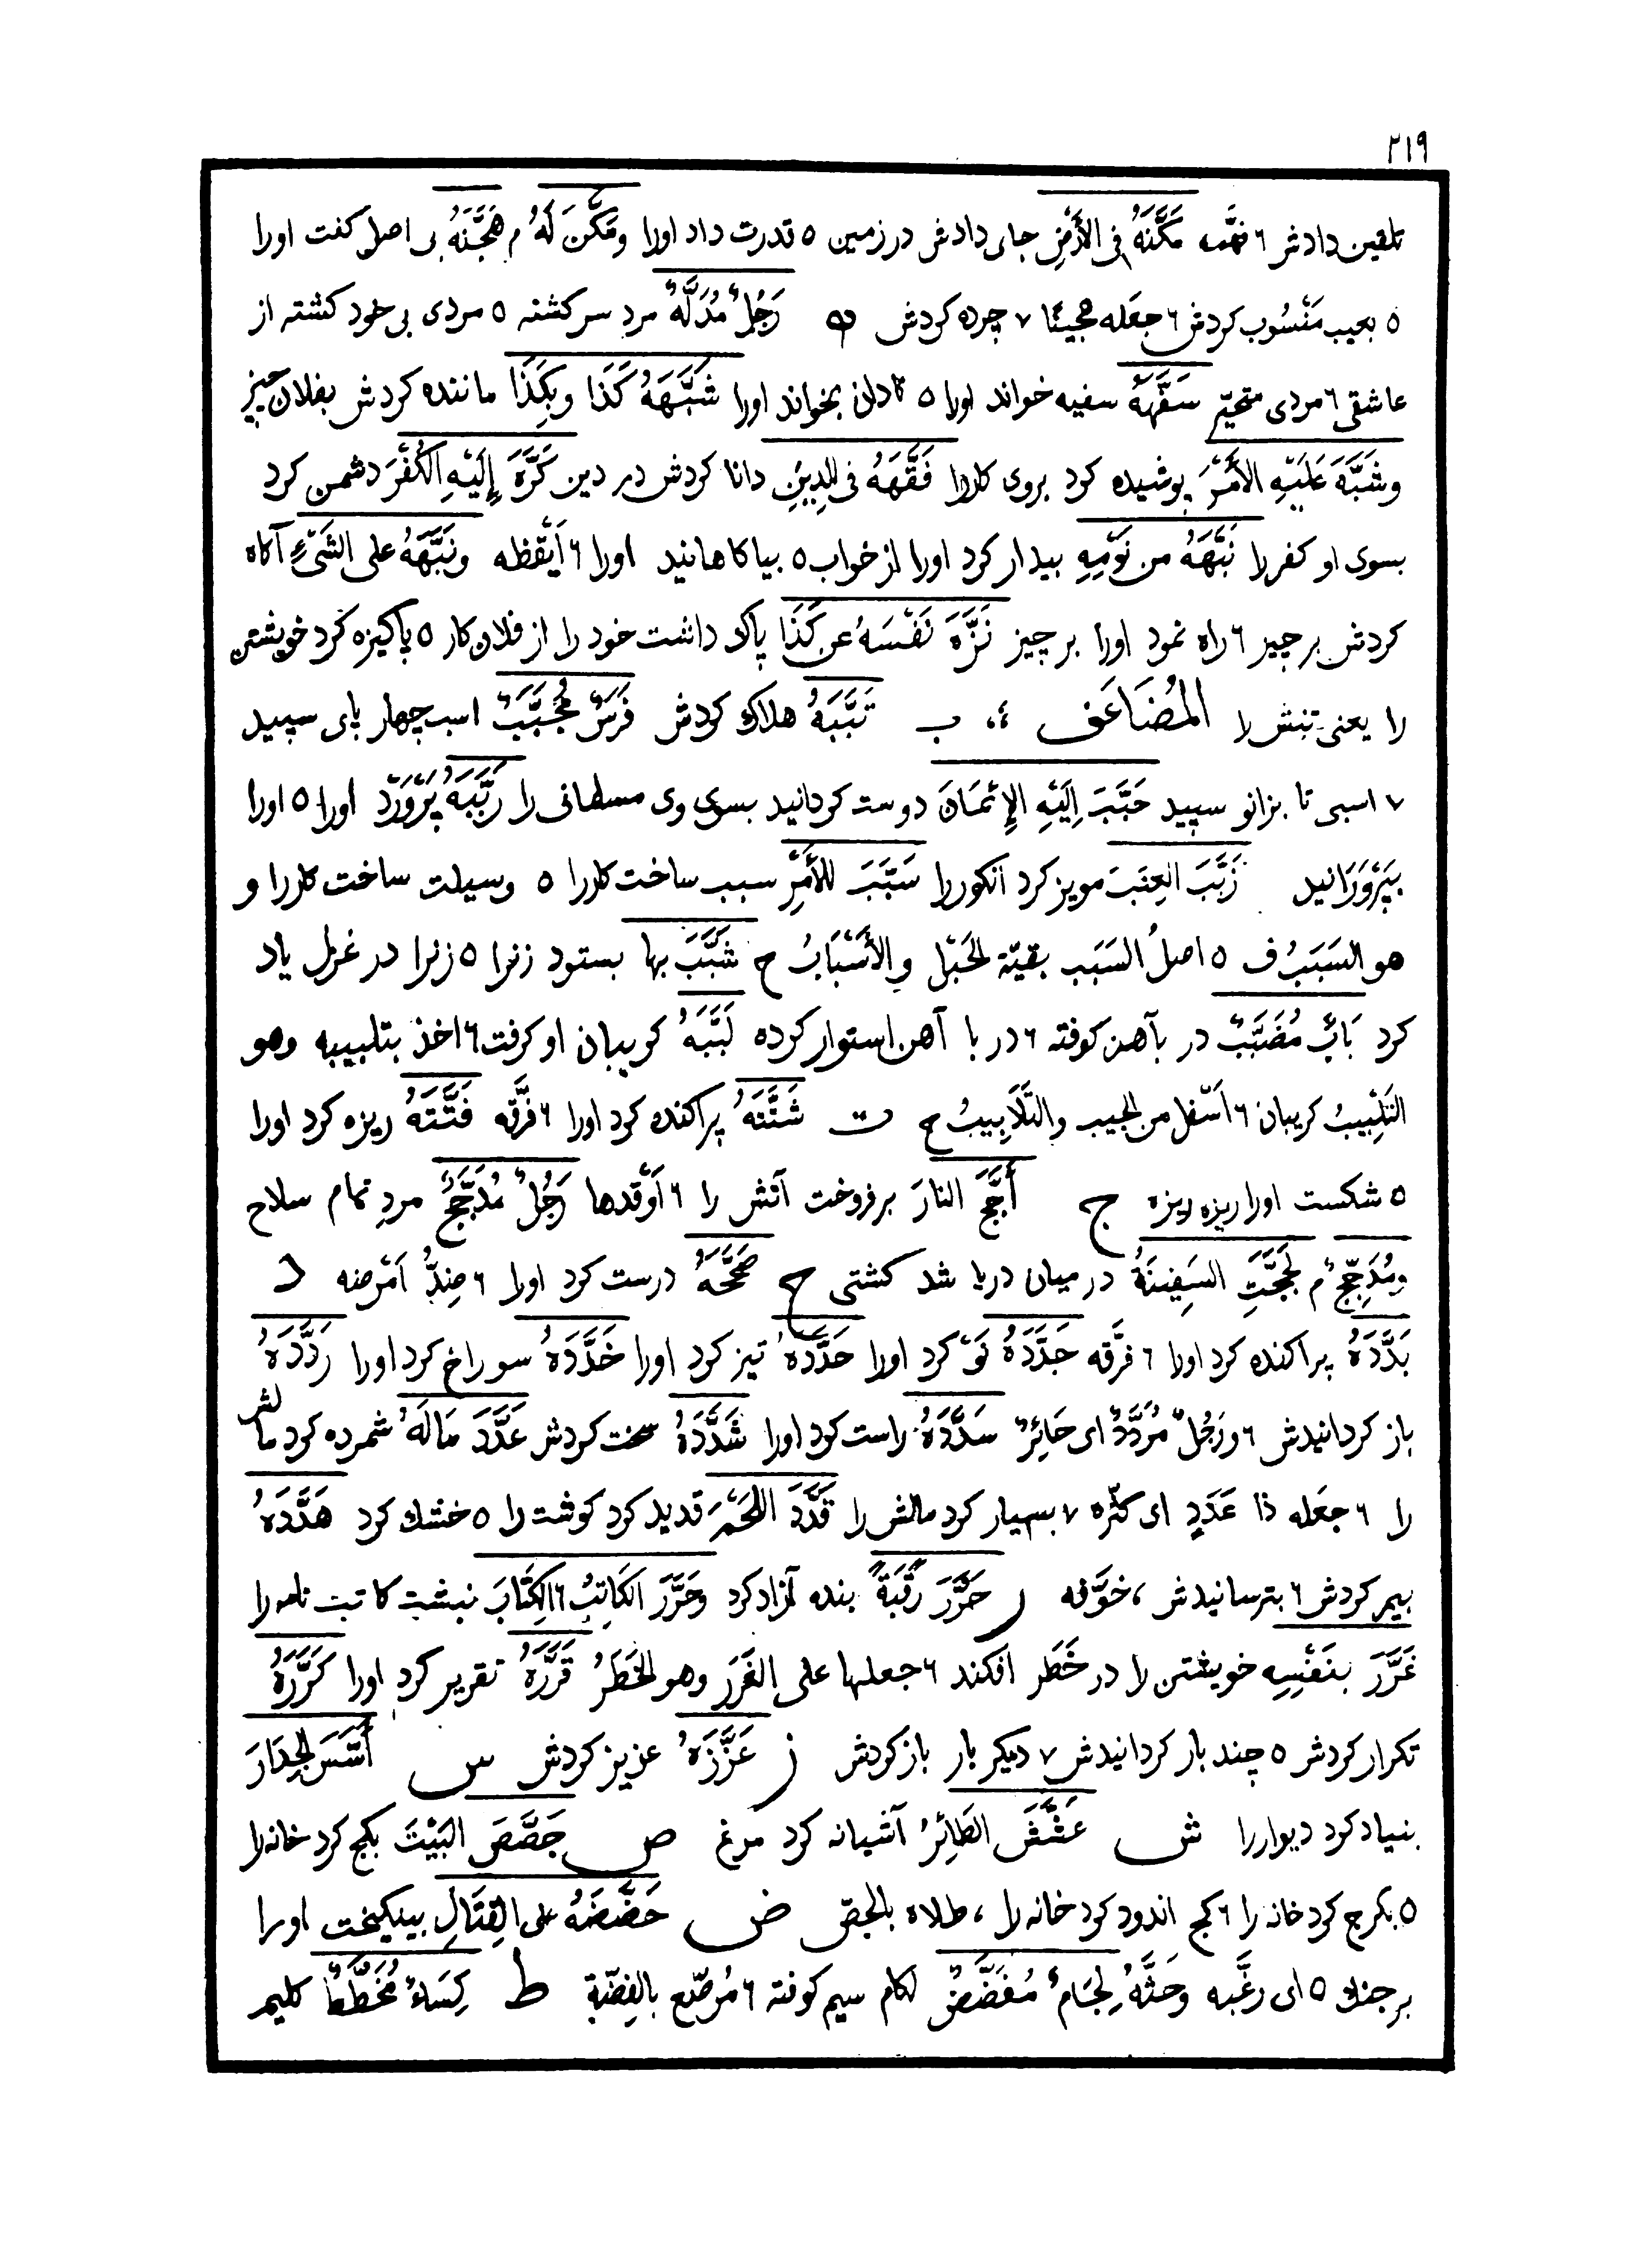 ٢١٩
تلقین دادش ٦ فهّمه مَكَّنَهُ فی الأَرْضِ جای دادش در زمین ٥ قدرت داد اورا ومَكَّنَ لَهُ م هَجَّنَهُ بی اصل کفت اورا
٥ بعیب مَنْسُوب کردش ٦ جعَله هجینًا ٧ چرده کردش ه رَجُلٌ مُدَلَّهٌ مرد سرکشته ٥ مردی بی خود کشته از
عاشقی ٦ مردی متحیّر سَفَّهَهُ سفیه خواند اورا ٥ نادان بخواند اورا شَبَّهَهُ كَذَا وبِكَذَا ماننده کردش بفلان چیز
وشَبَّهَ عَلَيْهِ الأَمْرَ پوشیده کرد بروی کاررا فَقَّهَهُ فی الدِینِ دانا کردش در دین كَرَّهَ إِلَيْهِ الكُفْرَ دشمن کرد
بسوی او کفررا نَبَّهَهُ من نَوْمِهِ بیدار کرد اورا از خواب ٥ بیاکاهانید اورا ٦ أَيْقظه ونَبَّهَهُ علی الشَیْءِ آکاه
کردش بر چیز ٦ راه نمود اورا بر چیز نَزَّهَ نَفْسَهُ عن كَذَا پاك داشت خود را از فلان کار ٥ پاکیزه کرد خویشتن
را یعنی تنش را المُضَاعَف ب تَبَّبَهُ هلاك کردش فَرَسٌ مُجَبَّبٌ اسب چهار پای سپید
٧ اسبی تا بزانو سپید حَبَّبَ اِلَيْهِ الإِيْمَانَ دوست کردانید بسوی وی مسلمانی را رَبَّبَهُ پَرْوَرْد اورا ٥ اورا
بپَرْوَرَانید زَبَّبَ العِنَبَ مویز کرد انکوررا سَبَّبَ للأَمْرِ سبب ساخت کاررا ٥ وسیلت ساخت کاررا و
هو السَبَبُ ف ٥ اصلُ السَبَب بقیّة الحَبْل والأَسْبَابُ ج شَبَّبَ بها بستود زنرا ٥ زنرا در غزل یاد
کرد بَابٌ مُضَبَّبٌ در بآهن کوفته ٦ در با آهن استوار کرده لَبَّبَهُ کریبان او کرفت ٦ اخذ بتلبیبه وهو
التَلْبِیبُ کریبان ٦ أَسْفل من الجیب والتَلَابِیبُ ج ت شَتَّتَهُ پراکنده کرد اورا ٦ فرَّقه فَتَّتَهُ ریزه کرد اورا
٥ شکست اورا ریزه ریزه ج أَجَّجَ النارَ برفروخت آتش را ٦ أَوْقدها رَجُلٌ مُدَجَّجٌ مردِ تمام سلاح
ومُدَجِّجٌ م لَجَّجَتِ السَفِینَةُ در میان دریا شد کشتی ح صَحَّحَهُ درست کرد اورا ٦ ضِدُّ أَمْرضه د
بَدَّدَهُ پراکنده کرد اورا ٦ فرَّقه جَدَّدَهُ نَوْ کرد اورا حَدَّدَهُ تیز کرد اورا خَدَّدَهُ سوراخ کرد اورا رَدَّدَهُ
باز کردانیدش ٦ ورَجُلٌ مُرَدَّدٌ ای حَائِرٌ سَدَّدَهُ راست کرد اورا شَدَّدَهُ سخت کردش عَدَّدَ مَالَهُ شمرده کرد مالش
را ٦ جعَله ذا عَدَدٍ ای کثّره ٧ بسیار کرد مالش را قَدَّدَ اللَحْمَ قدید کرد کوشت را ٥ خشك کرد هَدَّدَهُ
بیم کردش ٦ بترسانیدش ، خوَّفه ر حَرَّرَ رَقَبَةً بنده آزاد کرد وحَرَّرَ الكَاتِبُ ٦ الكِتَابَ نبشت کاتب نامه را
غَرَّرَ بنَفْسِهِ خویشتن را در خَطَر افکند ٦ جعلها علی الغَرَر وهو الخَطَرُ قَرَّرَهُ تقریر کرد اورا كَرَّرَهُ
تکرار کردش ٥ چند بار کردانیدش ٧ دیکر بار باز کردش ز عَزَّزَهُ عزیز کردش س أَسَّسَ الجِدَارَ
بنیاد کرد دیواررا ش عَشَّشَ الطَائِرُ آشیانه کرد مرغ ص جَصَّصَ البَيْتَ بکج کرد خانه را
٥ بکرج کرد خانه را ٦ کج اندود کرد خانه را ، طلاه بالجصّ ض حَضَّضَهُ علی القِتَالِ بینکیخت اورا
بر جنك ٥ ای رغَّبه وحَثَّهُ لِجَامٌ مُفَضَّضٌ لکام سیم کوفته ٦ مُرصّع بالفِضّة ط كِسَاءٌ مُخَطَّطٌ کلیم